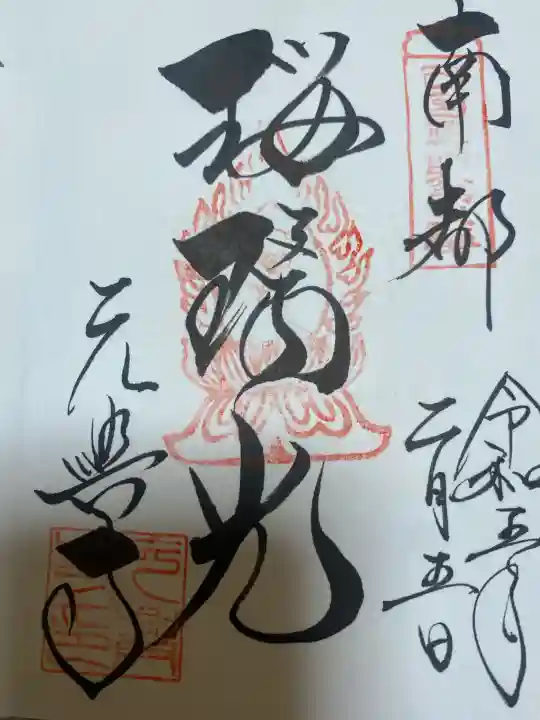 南都
令和五年
二月五日
瑠璃光
元興寺